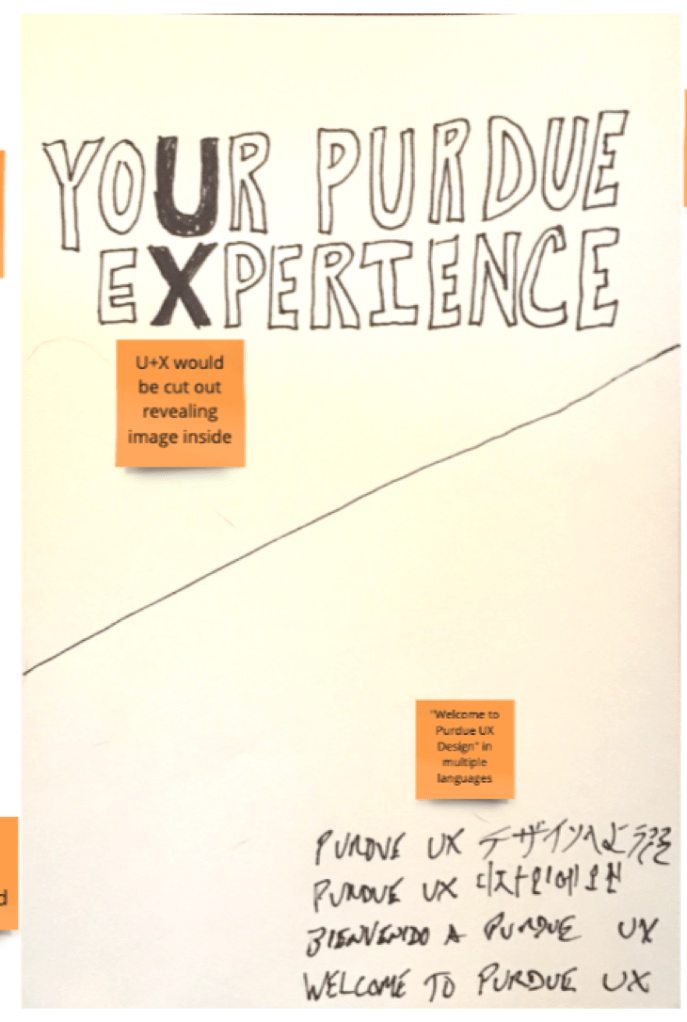 YOUR PURDUE
EXPERIENCE
U+X would
be cut out
revealing
image inside
"Welcome to
Purdue UX
Design" in
multiple
languages
d
PURDUE UX デザインへよう
PURDUE UX 디자인에 오신
BIENVENIDO A PURDUE UX
WELCOME TO PURDUE UX